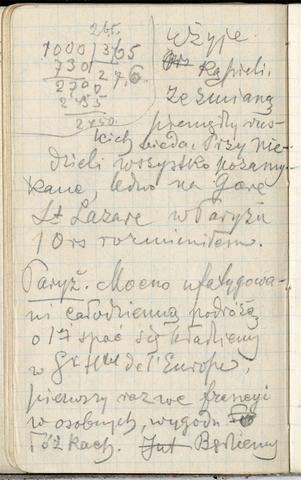 265.
1000 | 365
730 | 27,6
2700
2455
2450
użyje
kąpieli.
Ze zmianą
pieniędzy rus-
kich bieda. Przy nie-
dzieli wszystko pozamy-
kane, ledwo na Gare
St Lazare w Paryżu
10 rs rozmieniłem.
Paryż. Mocno ufatygowa-
ni całodzienną podróżą
o 1 spać się kładziemy
w Gr Htel de l'Europe,
pierwszy raz we francyi
w osobnych, wygodn
łóżkach. Jut Będziemy